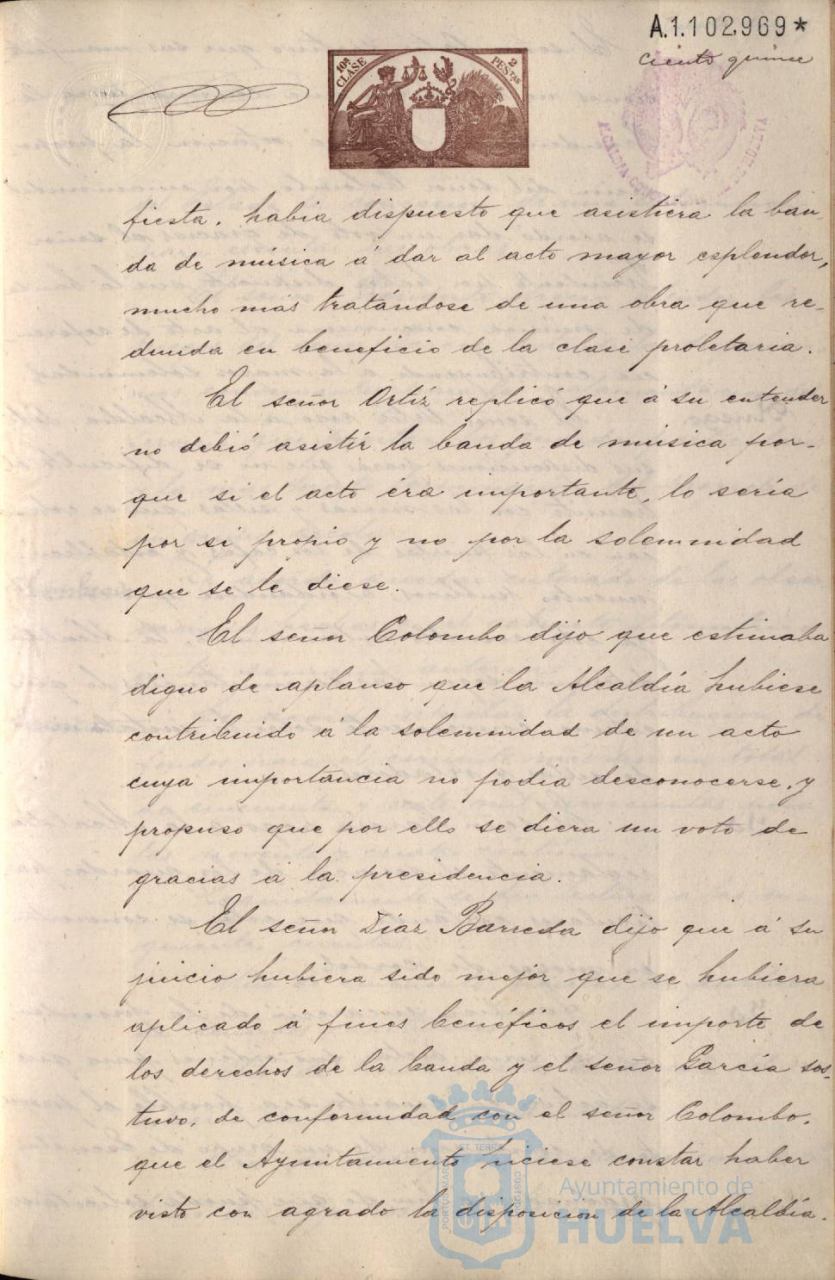 A.1.102.969*
ciento quince
10ª CLASE
2 PESTAS
ALCALDIA CONSTITUCIONAL DE HUELVA
fiesta. habia dispuesto que asistiera la ban-
da de música á dar al acto mayor esplendor,
mucho más tratándose de una obra que re-
dunda en beneficio de la clase proletaria.
El señor Ortíz replicó que á su entender
no debió asistir la banda de música por-
que si el acto éra importante, lo sería
por si propio y no por la solemnidad
que se le diese.
El señor Colombo dijo que estimaba
digno de aplauso que la Alcaldía hubiese
contribuido á la solemnidad de un acto
cuya importancia no podia desconocerse, y
propuso que por ello se diera un voto de
gracias á la presidencia.
El señor Díaz Barreda dijo que á su
juicio hubiera sido mejor que se hubiera
aplicado á fines benéficos el importe de
los derechos de la banda y el señor García sos-
tuvo, de conformidad con el señor Colombo,
que el Ayuntamiento hiciese constar haber
visto con agrado la disposicion de la Alcaldía.
Ayuntamiento de
HUELVA